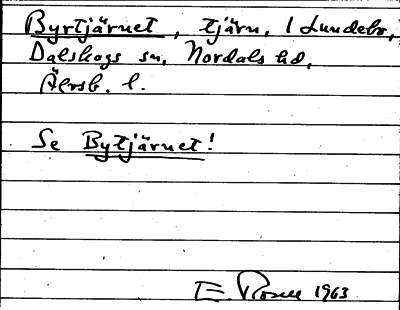 Byrtjärnet, tjärn, 1 Lundebo,
Dalskogs sn, Nordals hd,
Älvsb. l.
Se Bytjärnet!
E. Rosell 1963